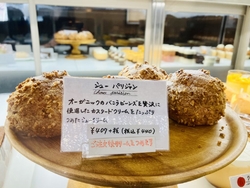 シュー パリジャン
オーガニックのバニラビーンズを贅沢に
使用したカスタードクリームをたっぷり
つめたシュークリーム
¥407+税(税込¥440)